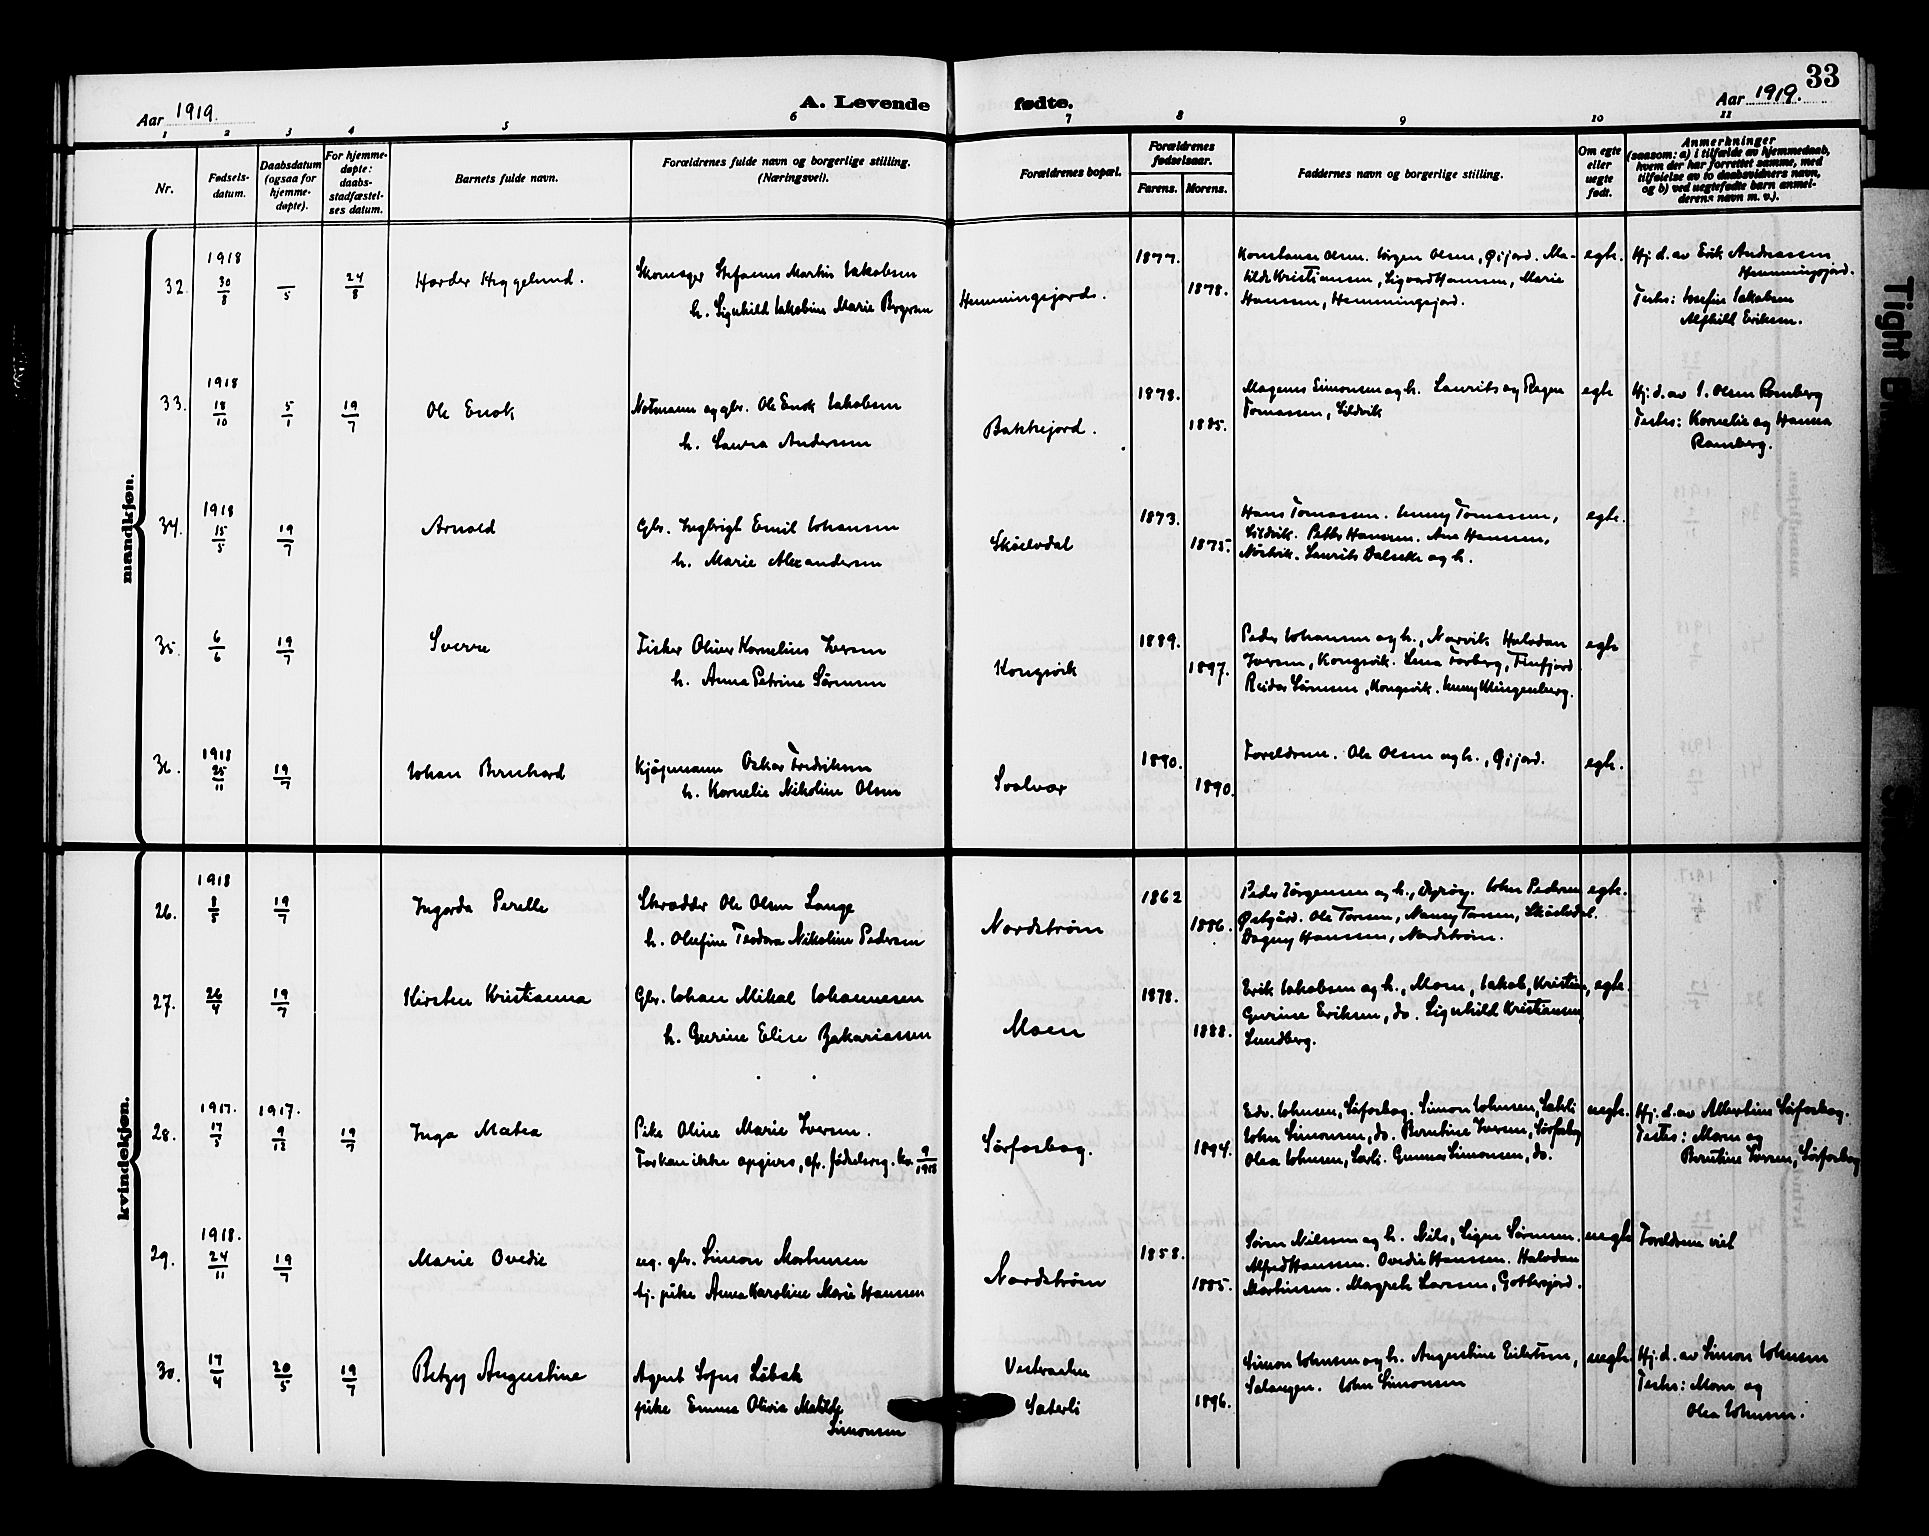 33
Aar 1919.
A. Levende
fødte.
Aar 1919.
1 2 3 4 5 6 7 8 9 10 11
Nr.
Fødsels-
datum.
Daabsdatum
(ogsaa for
hjemme-
døpte).
For hjemme-
døpte:
daabs-
stadfæstel-
ses datum.
Barnets fulde navn.
Forældrenes fulde navn og borgerlige stilling.
(Næringsvei).
Forældrenes bopæl.
Forældrenes
fødselsaar.
Farens. Morens.
Faddernes navn og borgerlige stilling.
Om egte
eller
uegte
født.
Anmerkninger
(saasom: a) i tilfælde av hjemmedaab,
hvem der har forrettet samme, med
tilføielse av to daabsvidners navn,
og b) ved uegtefødte barn anmel-
derens navn m. v.).
mandkjøn.
32. 1918 30/8 /5 24/8
Harder Heggelund.
Skomager Stefanus Martin Jakobsen
h. Signhild Jakobine Marie Bergersen
Hemmingsjord.
1877.
1878.
Konstanse Olsen. Jørgen Olsen, Øijord. Ma-
tilde Kristiansen, Sigvard Hansen, Marie
Hansen, Hemmingsjord.
egte.
Hj. d. av Erik Andreassen
Hemmingsjord.
Testes: Josefine Jakobsen
Alfhild Eriksen.
33. 1918 18/10 5/1 19/7
Ole Enok
Notmann og gbr. Ole Enok Jakobsen
h. Laura Andersen
Bakkejord.
1878.
1885.
Magnus Simonsen og h. Laurits og Ragna
Tomassen, Sildvik
egte
Hj. d. av J. Olsen Ramberg
Testes: Kornelie og Hanna
Ramberg.
34. 1918 15/5 19/7
Arnold
Gbr. Ingbrigt Emil Johansen
h. Marie Alexandersen
Skøelvdal
1873.
1875.
Hans Tomassen. Jenny Tomassen,
Sildvik. Petter Hansen. Ane Hansen,
Laurits Dalsekke og h.
egte.
35. 6/6 19/7
Sverre
Fisker Oliver Kornelius Iversen
h. Anna Petrine Sørensen
Kongsvik
1889.
1897.
Peder Johansen og h., Narvik. Halvdan
Iversen, Kongsvik. Lena Forberg, Finfjord
Reidar Sørensen, Kongsvik. Jenny Klingenberg.
egte
36. 1918 25/11 19/7
Johan Bernhard
Kjøpmann Oskar Fredriksen
h. Kornelie Nikoline Olsen
Svolvær
1890.
1890.
Foreldrene. Ole Olsen og h., Øijord.
egte.
kvindekjøn.
26. 1918 8/5 19/7
Ingarda Perelle
Skrædder Ole Olsen Lange
h. Olufine Teodora Nikoline Pedersen
Nordstrøm
1862
1886.
Peder Jørgensen og h., Dyrøy. John Pedersen
Østgård. Ole Torsen, Nanny Torsen, Skøelvdal.
Dagny Hanssen, Nordstrøm.
egte.
27. 26/4 19/7
Kirsten Kristianna
Gbr. Johan Mikal Johannesen
h. Gurine Elise Zakariassen
Moen
1878.
1888.
Erik Jakobsen og h., Moen, Jakob, Kristine,
Gurine Eriksen, do. Signhild Kristiansen,
Lundberg.
egte.
28. 1917. 17/5 1917. 9/12 19/7
Inga Matea
Pike Oline Marie Iversen.
Far kan ikke opgives, cf. fødselsreg. kv. 9/1918
Sørforsbag.
1894.
Edv. Johnsen, Sørforsbag. Simon Johnsen, Sæterli
John Simonsen, do. Berntine Iversen, Sørforsbag
Olea Johnsen, Sæterli. Gunnar Simonsen, do.
uegte.
Hj. d. av Albertine Sørforsbag.
Testes: Moren og
Berntine Iversen, Sørforsbag
29. 1918. 24/11 19/7
Marie Ovedie
ug. gbr. Simon Mortensen
tj. pike Anna Karoline Marie Hanssen
Nordstrøm
1858.
1885.
Søren Nilssen og h. Nils, Signe Sørensen.
Alfred Hanssen. Ovedie Hanssen. Halvdan
Martinsen. Magrete Larssen, Gottesjord.
uegte
Foreldrene viet
30. 17/4 20/5 19/7
Betzy Augustine
Agent Sofus Løbak
pike Emma Olivia Matilde
Simonsen
Vestvaagen
Sæterli
1896.
Simon Johnsen og h. Augustine Eilertsen,
Salangen. John Simonsen
uegte.
Hj. d. av Simon Johnsen
Testes: Moren og
Olea Johnsen.
Tight